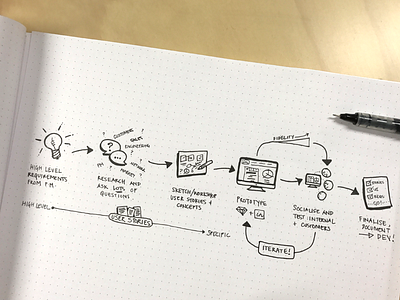 FIDELITY
CUSTOMER
SALES
ENGINEERING
?
PM
MARKET
HIGH LEVEL
REQUIREMENTS
FROM P.M.
RESEARCH AND
ASK LOTS OF
QUESTIONS
SKETCH/WORKSHOP
USER STORIES +
CONCEPTS
PROTOTYPE
+ in
SOCIALISE AND
TEST: INTERNAL
+ CUSTOMERS
FINALISE,
DOCUMENT
→ DEV!
HIGH LEVEL
USER STORIES
SPECIFIC
ITERATE!